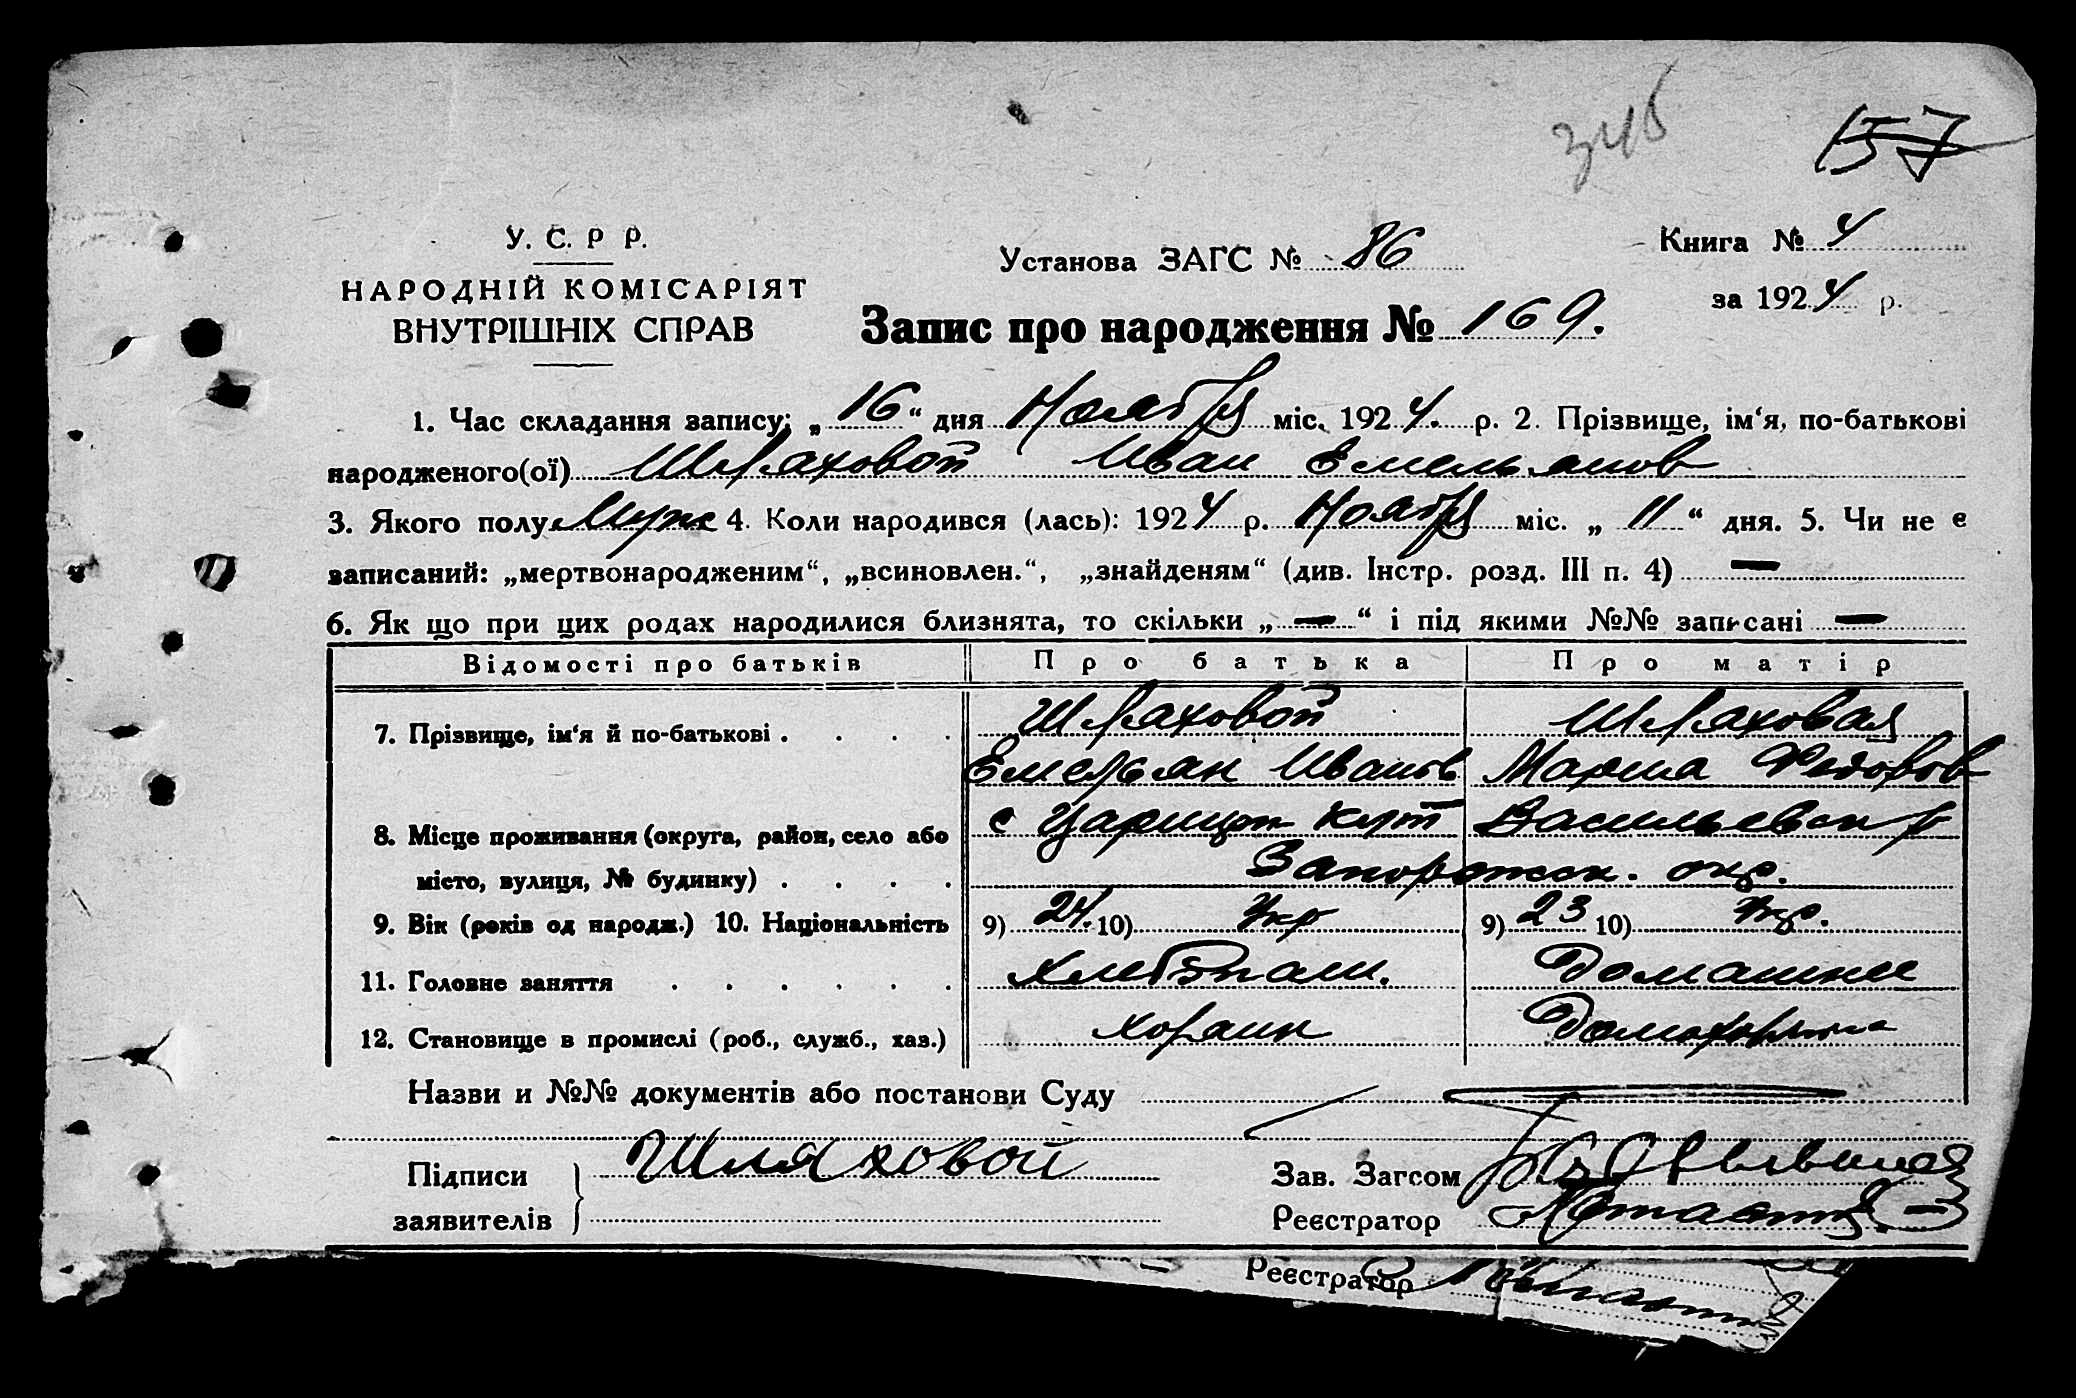 345
157
У. С. Р Р.
Установа ЗАГС № 86
Книга № 4
НАРОДНІЙ КОМІСАРІЯТ
за 1924 р.
ВНУТРІШНІХ СПРАВ
Запис про народження № 169.
1. Час складання запису: „16“ дня Ноября міс. 1924. р. 2. Прізвище, ім‘я, по-батькові
народженого(ої) Шляховой Иван Емельянов
3. Якого полу Муж 4. Коли народився (лась): 1924 р. Ноября міс. „11“ дня. 5. Чи не є
записаний: „мертвонародженим“, „всиновлен.“, „знайденям“ (див. Інстр. розд. III п. 4) —
6. Як що при цих родах народилися близнята, то скільки „—“ і під якими №№ записані —
Відомості про батьків Про батька Про матір
7. Прізвище, ім‘я й по-батькові . . . . Шляховой Шляховая
Емельян Иванов Мария Федоров
8. Місце проживання (округа, район, село або с Царицын кут Васильевск р
місто, вулиця, № будинку) . . . . Запорожск. окр.
9. Вік (років од народж.) 10. Національність 9) 24. 10) Укр 9) 23 10) Укр.
11. Головне заняття . . . . . . Хлебопаш. Домашнее
12. Становище в промислі (роб., служб., хаз.) хозяин
Назви и №№ документів або постанови Суду
Підписи Шляховой Зав. Загсом
заявителів Реєстратор
Реєстратор